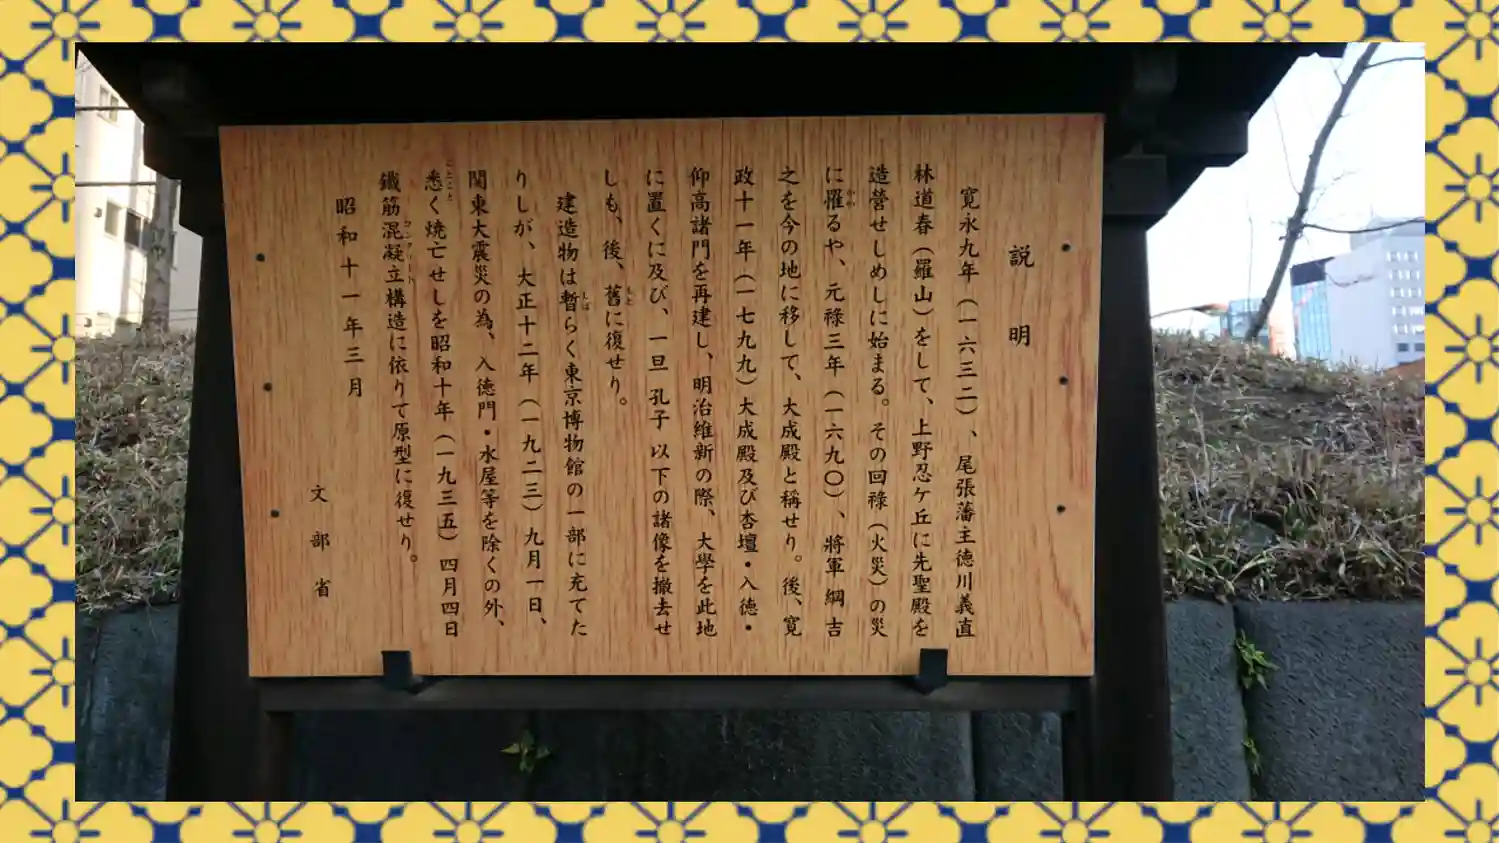 説明
寛永九年(一六三二)、尾張藩主徳川義直
林道春(羅山)をして、上野忍ケ丘に先聖殿を
造營せしめしに始まる。その回祿(火災)の災
に罹るや、元祿三年(一六九〇)、將軍綱吉
之を今の地に移して、大成殿と稱せり。後、寛
政十一年(一七九九)大成殿及び杏壇・入徳・
仰高諸門を再建し、明治維新の際、大學を此地
に置くに及び、一旦 孔子 以下の諸像を撤去せ
しも、後、舊に復せり。
建造物は暫らく東京博物館の一部に充てた
りしが、大正十二年(一九二三)九月一日、
関東大震災の為、入徳門・水屋等を除くの外、
悉く焼亡せしを昭和十年(一九三五)四月四日
鐵筋混凝立構造に依りて原型に復せり。
昭和十一年三月
文部省